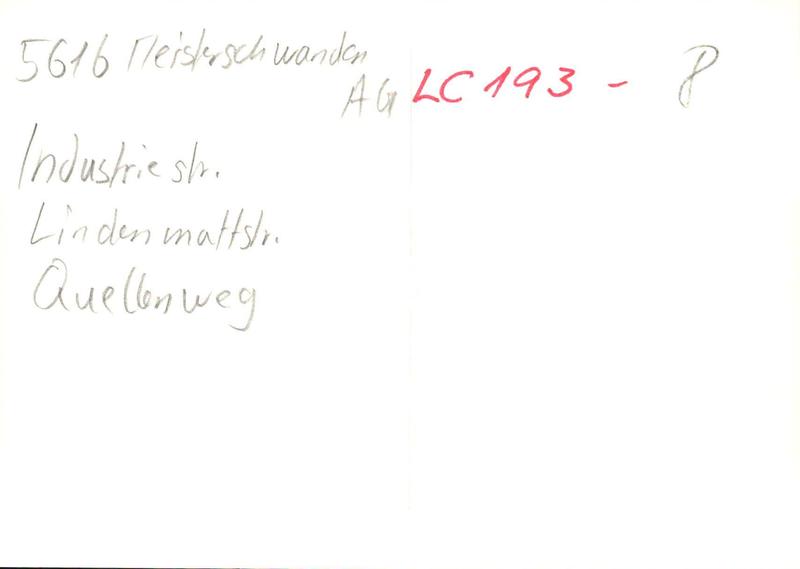 5616 Meisterschwanden
AG LC 193 - 8
Industriestr.
Lindenmattstr.
Quellenweg